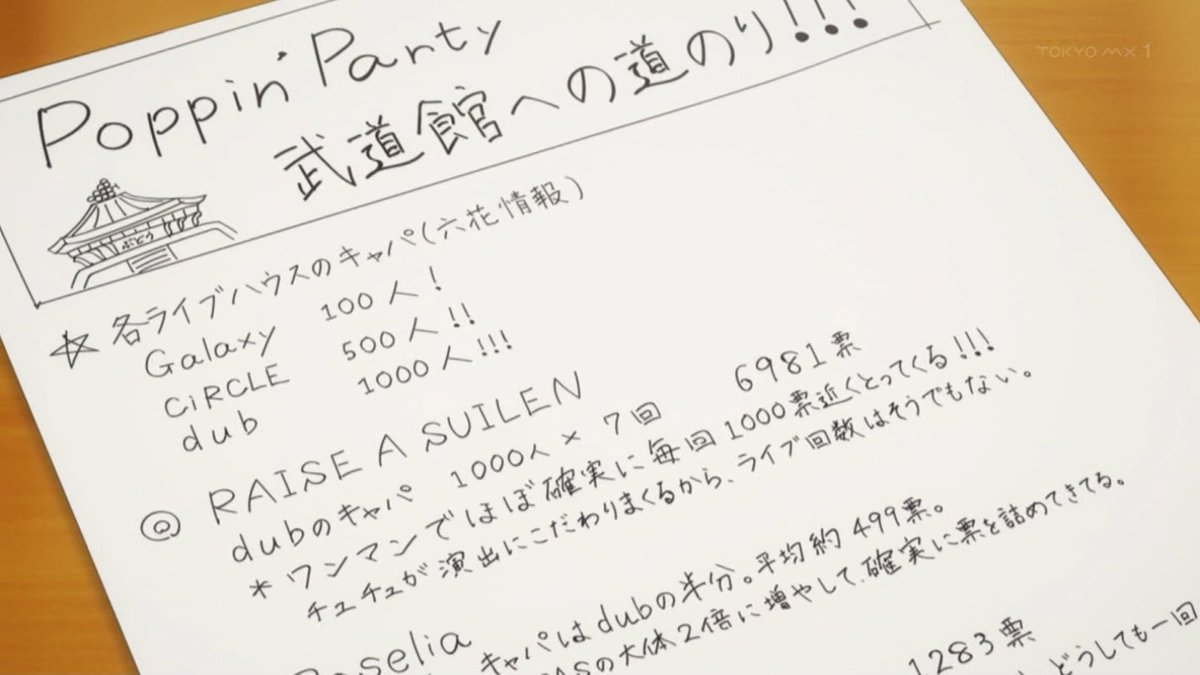 TOKYO MX1
Poppin'Party
武道館への道のり!!!
ぶどう
☆ 各ライブハウスのキャパ(六花情報)
Galaxy 100人!
CiRCLE 500人!!
dub 1000人!!!
◎ RAISE A SUILEN 6981票
dubのキャパ 1000人 × 7回
* ワンマンでほぼ確実に毎回1000票近くとってくる!!!
チュチュが演出にこだわりまくるから、ライブ回数はそうでもない。
selia
キャパはdubの半分。平均約499票。
の大体2倍に増やして、確実に票を詰めてきてる。
1283票
どうしても一回